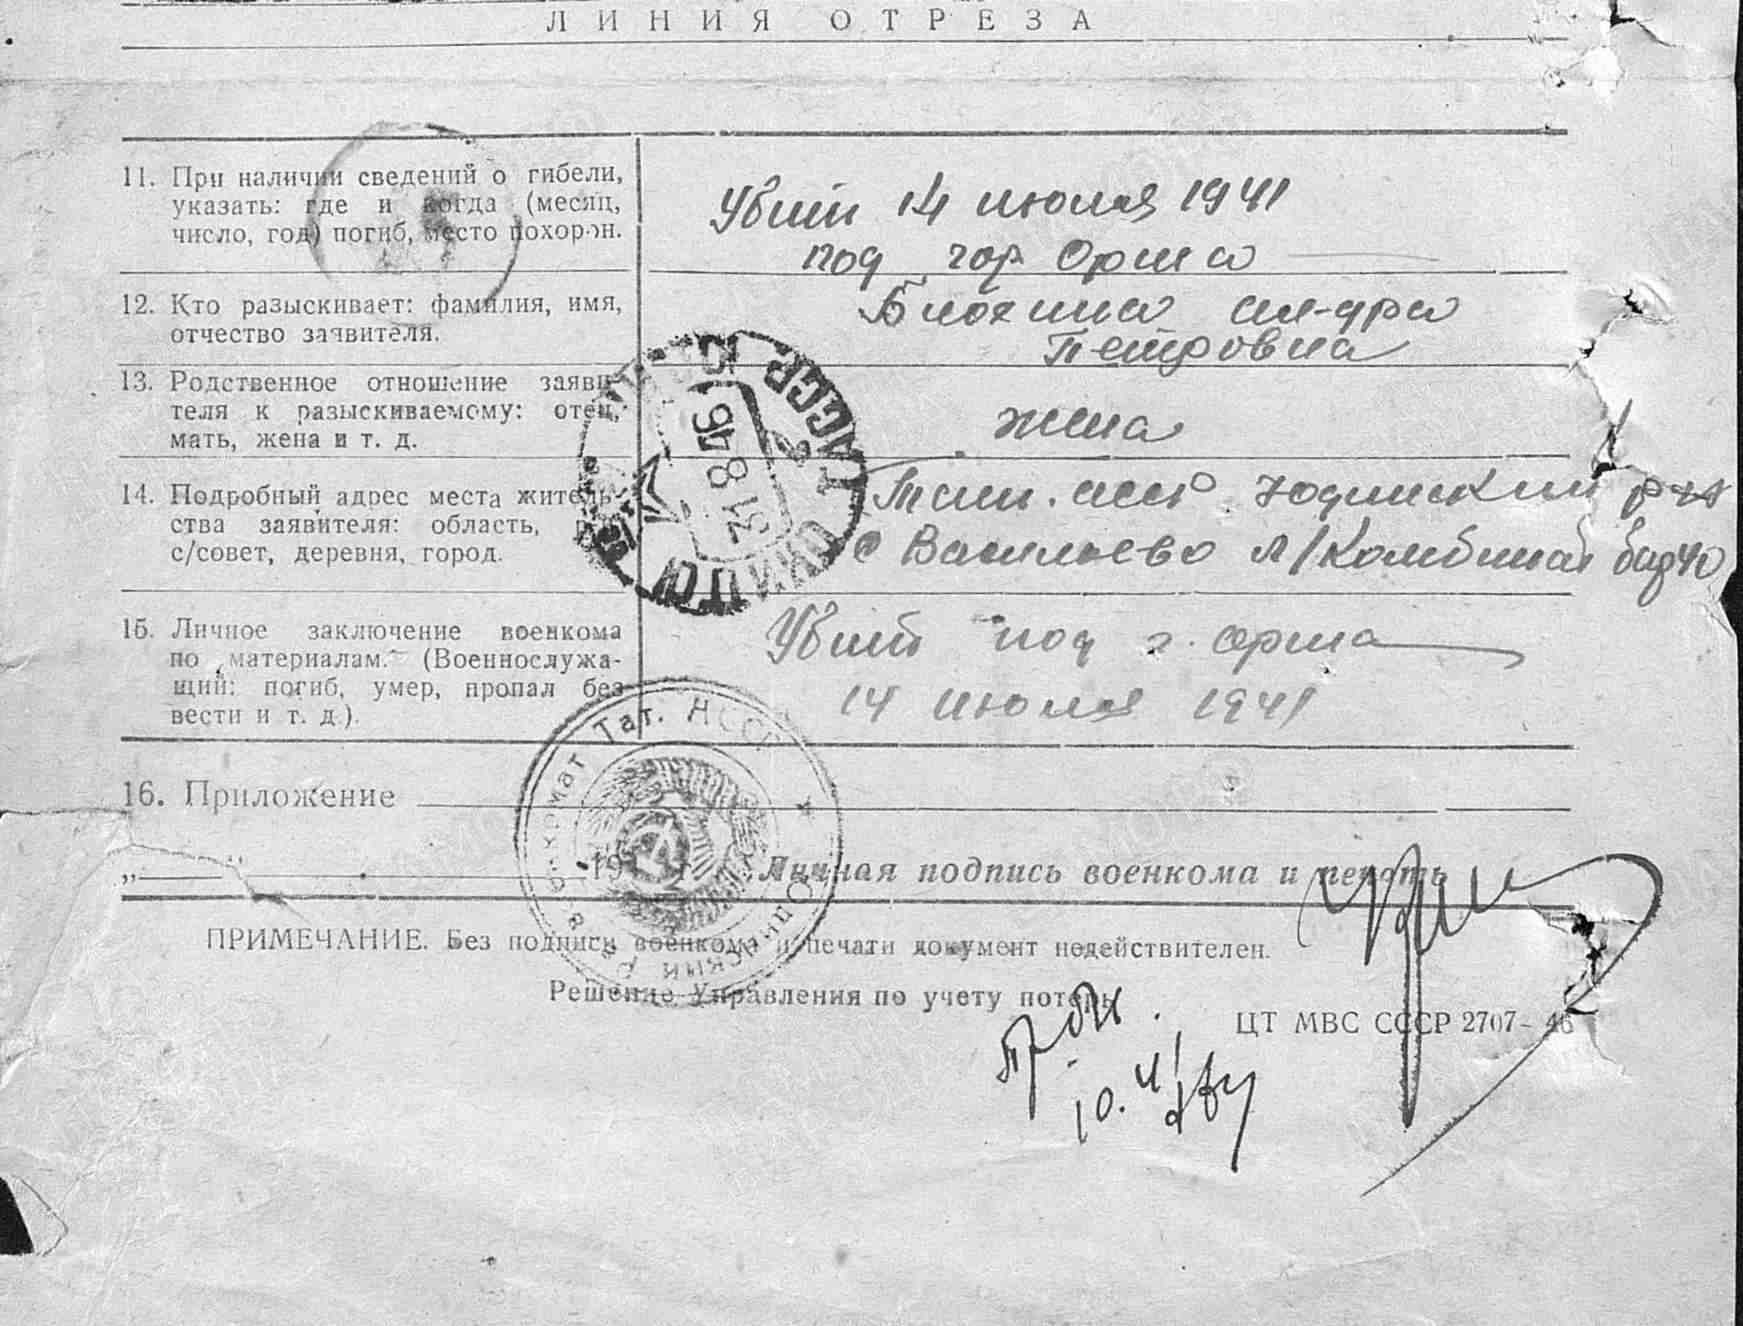 ЛИНИЯ ОТРЕЗА
11. При наличии сведений о гибели,
указать: где и когда (месяц,
число, год) погиб, место похорон.
Убит 14 июля 1941
под гор Орша
12. Кто разыскивает: фамилия, имя,
отчество заявителя.
Блохина ал-дра
Петровна
13. Родственное отношение заяви-
теля к разыскиваемому: отец,
мать, жена и т. д.
жена
14. Подробный адрес места житель-
ства заявителя: область,
с/совет, деревня, город.
Тат. асср
с Васильево л/Комбинат
15. Личное заключение военкома
по материалам. (Военнослужа-
щий: погиб, умер, пропал без
вести и т. д.).
Убит под г. Орша
14 июля 1941
31 8 46
АССР
Тат. АССР
16. Приложение
„ “ 19 Личная подпись военкома и печать
ПРИМЕЧАНИЕ. Без подписи военкома и печати документ недействителен.
Решение Управления по учету потерь
ЦТ МВС СССР 2707-46
10.4